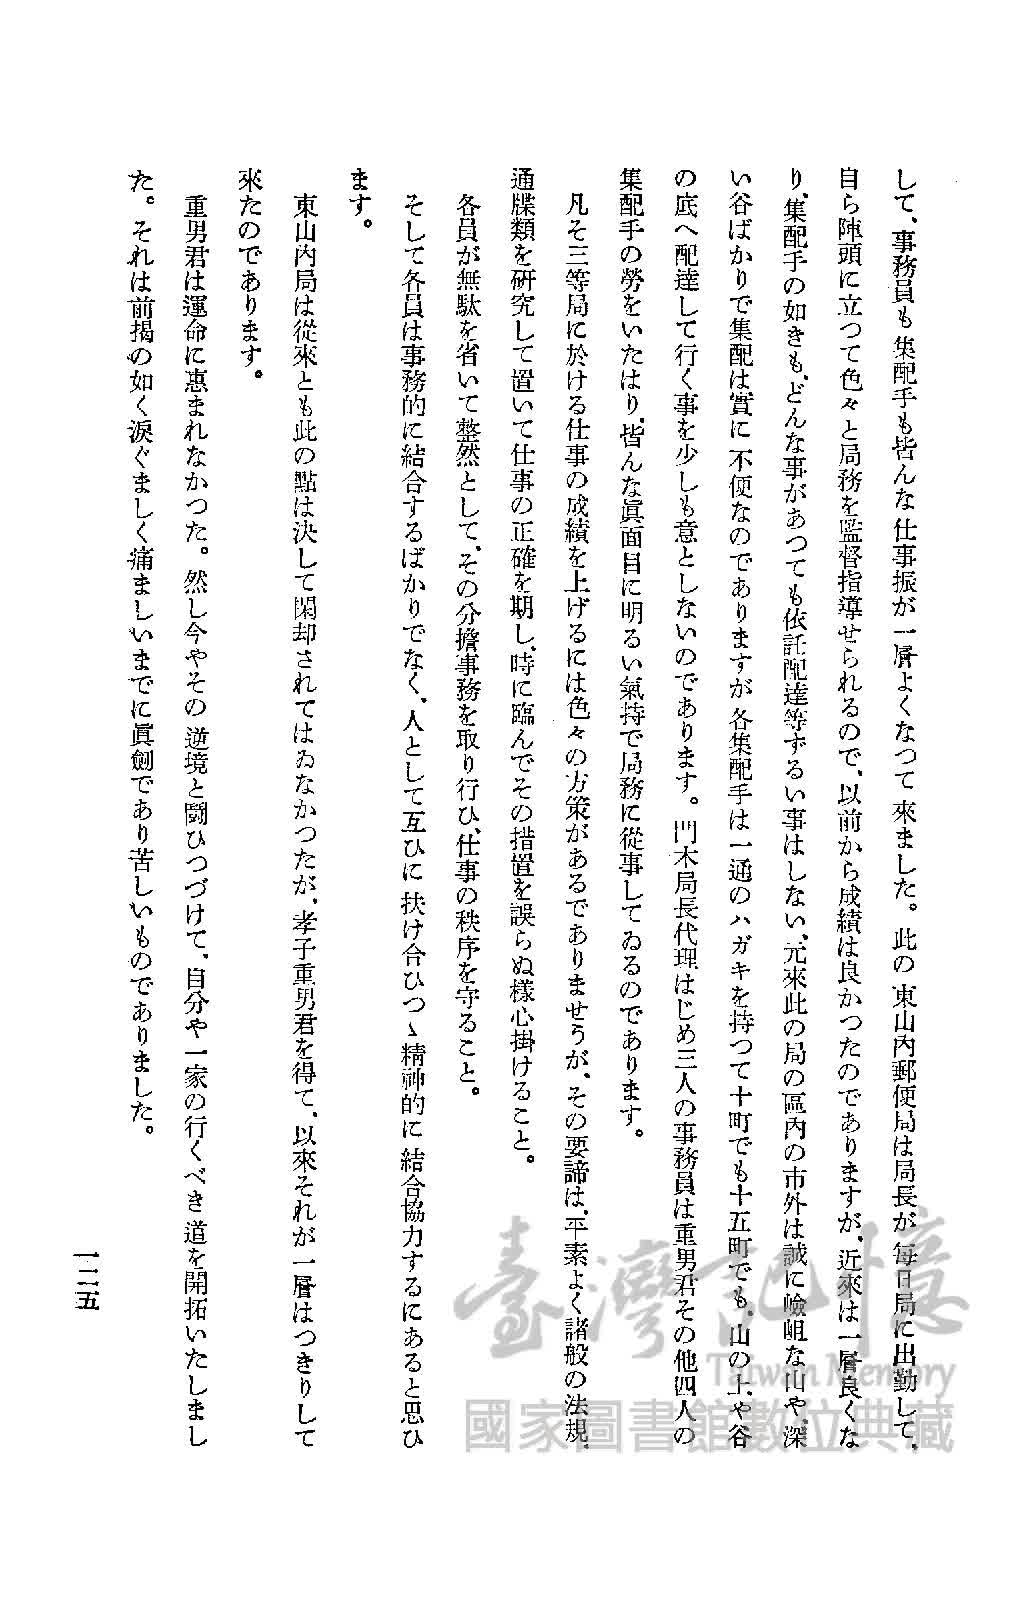 して、事務員も集配手も皆んな仕事振が一層よくなつて來ました。此の東山內郵便局は局長が每日局に出勤して、
自ら陣頭に立つて色々と局務を監督指導せられるので、以前から成績は良かつたのでありますが、近來は一層良くな
り、集配手の如きも、どんな事があつても依託配達等ずるい事はしない、元來此の局の區內の市外は誠に嶮岨な山や、深
い谷ばかりで集配は實に不便なのでありますが各集配手は一通のハガキを持つて十町でも十五町でも、山の上や谷
の底へ配達して行く事を少しも意としないのであります。門木局長代理はじめ三人の事務員は重男君その他四人の
集配手の勞をいたはり、皆んな眞面目に明るい氣持で局務に從事してゐるのであります。
凡そ三等局に於ける仕事の成績を上げるには色々の方策があるでありませうが、その要諦は、平素よく諸般の法規、
通牒類を研究して置いて仕事の正確を期し、時に臨んでその措置を誤らぬ樣心掛けること。
各員が無駄を省いて整然として、その分擔事務を取り行ひ、仕事の秩序を守ること。
そして各員は事務的に結合するばかりでなく、人として互ひに扶け合ひつゝ精神的に結合協力するにあると思ひ
ます。
東山內局は從來とも此の點は決して閑却されてはゐなかつたが、孝子重男君を得て、以來それが一層はつきりして
來たのであります。
重男君は運命に惠まれなかつた。然し今やその逆境と鬪ひつづけて、自分や一家の行くべき道を開拓いたしまし
た。それは前揭の如く淚ぐましく痛ましいまでに眞劍であり苦しいものでありました。
一二五
臺灣記憶
Taiwan Memory
國家圖書館數位典藏